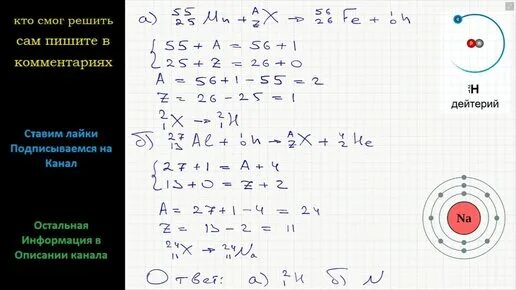 кто смог решить
сам пишите в
комментариях
Ставим лайки
Подписываемся на
Канал
Остальная
Информация в
Описании канала
а) ⁵⁵₂₅Mn + ᴬ_ZX → ⁵⁶₂₆Fe + ¹₀n
{ 55 + A = 56 + 1
{ 25 + Z = 26 + 0
A = 56 + 1 - 55 = 2
Z = 26 - 25 = 1
²₁X → ²₁H
б) ²⁷₁₃Al + ¹₀n → ᴬ_ZX + ⁴₂He
{ 27 + 1 = A + 4
{ 13 + 0 = Z + 2
A = 27 + 1 - 4 = 24
Z = 13 - 2 = 11
²⁴₁₁X → ²⁴₁₁Na
Ответ: а) ²₁H б) N
H
дейтерий
Na